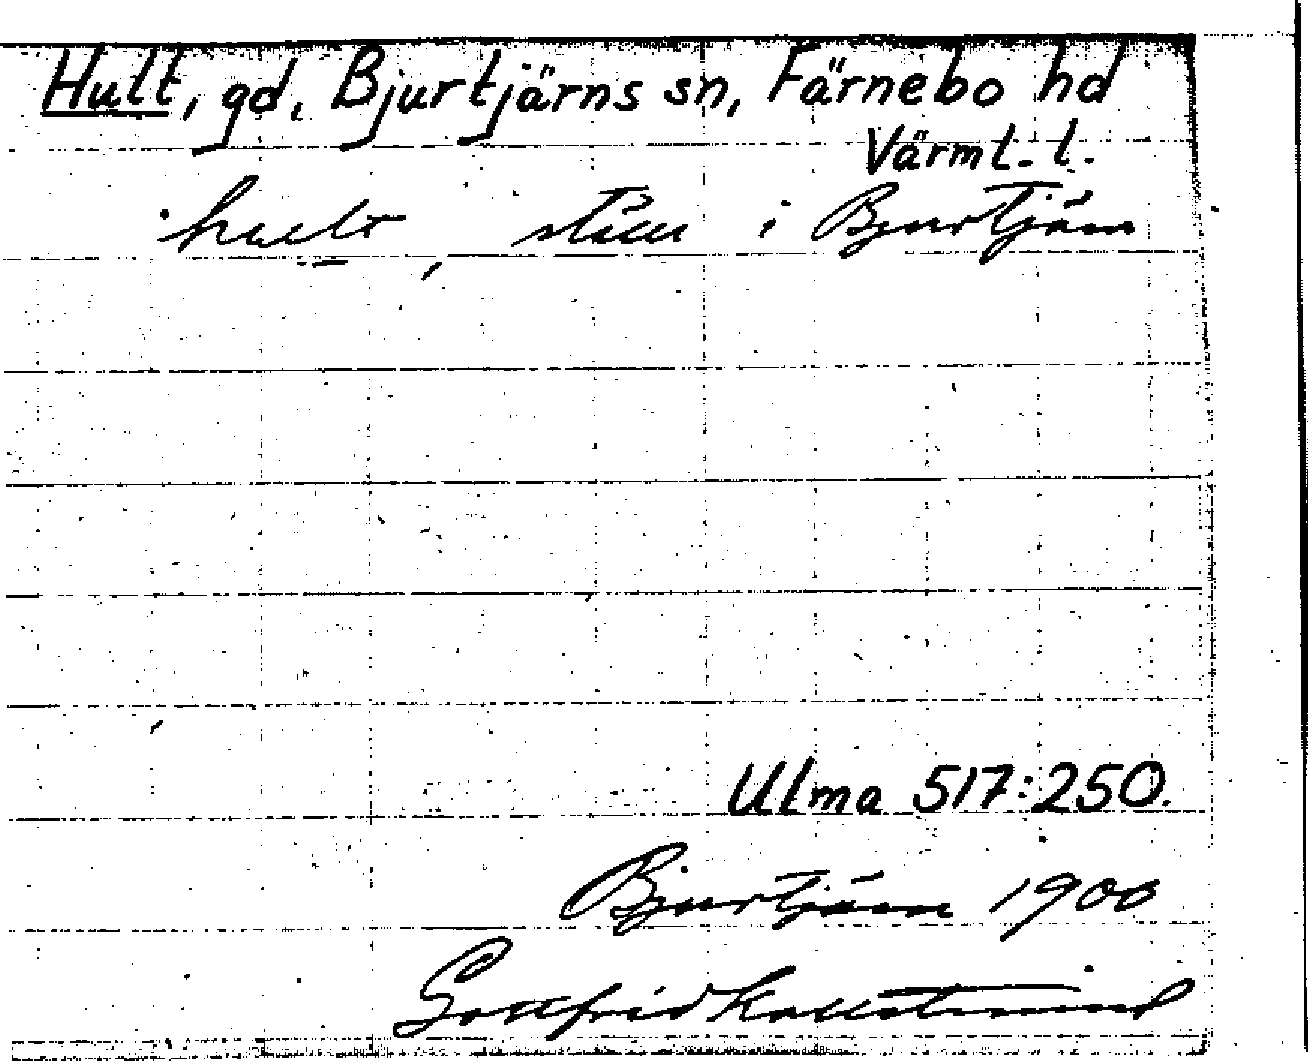 Hult, gd, Bjurtjärns sn, Färnebo hd
Värml. l.
hult, i Bjurtjärn
Ulma 517:250.
Bjurtjärn 1900
Gottfrid Kallstenius